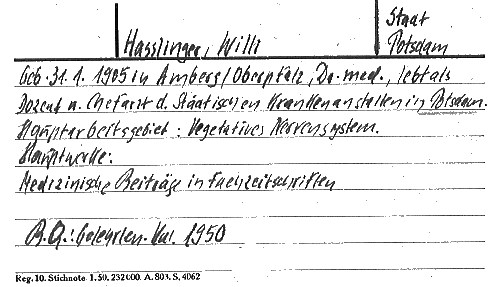 Staat
Hasslinger, Willi Potsdam
Geb. 31.1.1905 in Amberg/Oberpfalz, Dr. med., lebt als
Dozent u. Chefarzt d. Städtischen Krankenanstalten in Potsdam.
Hauptarbeitsgebiet: Vegetatives Nervensystem.
Hauptwerke:
Medizinische Beiträge in Fachzeitschriften
B.Q.: Gelehrten-Kal. 1950
Reg. 10. Stichnote 1. 50. 232 000. A. 803. S. 4062